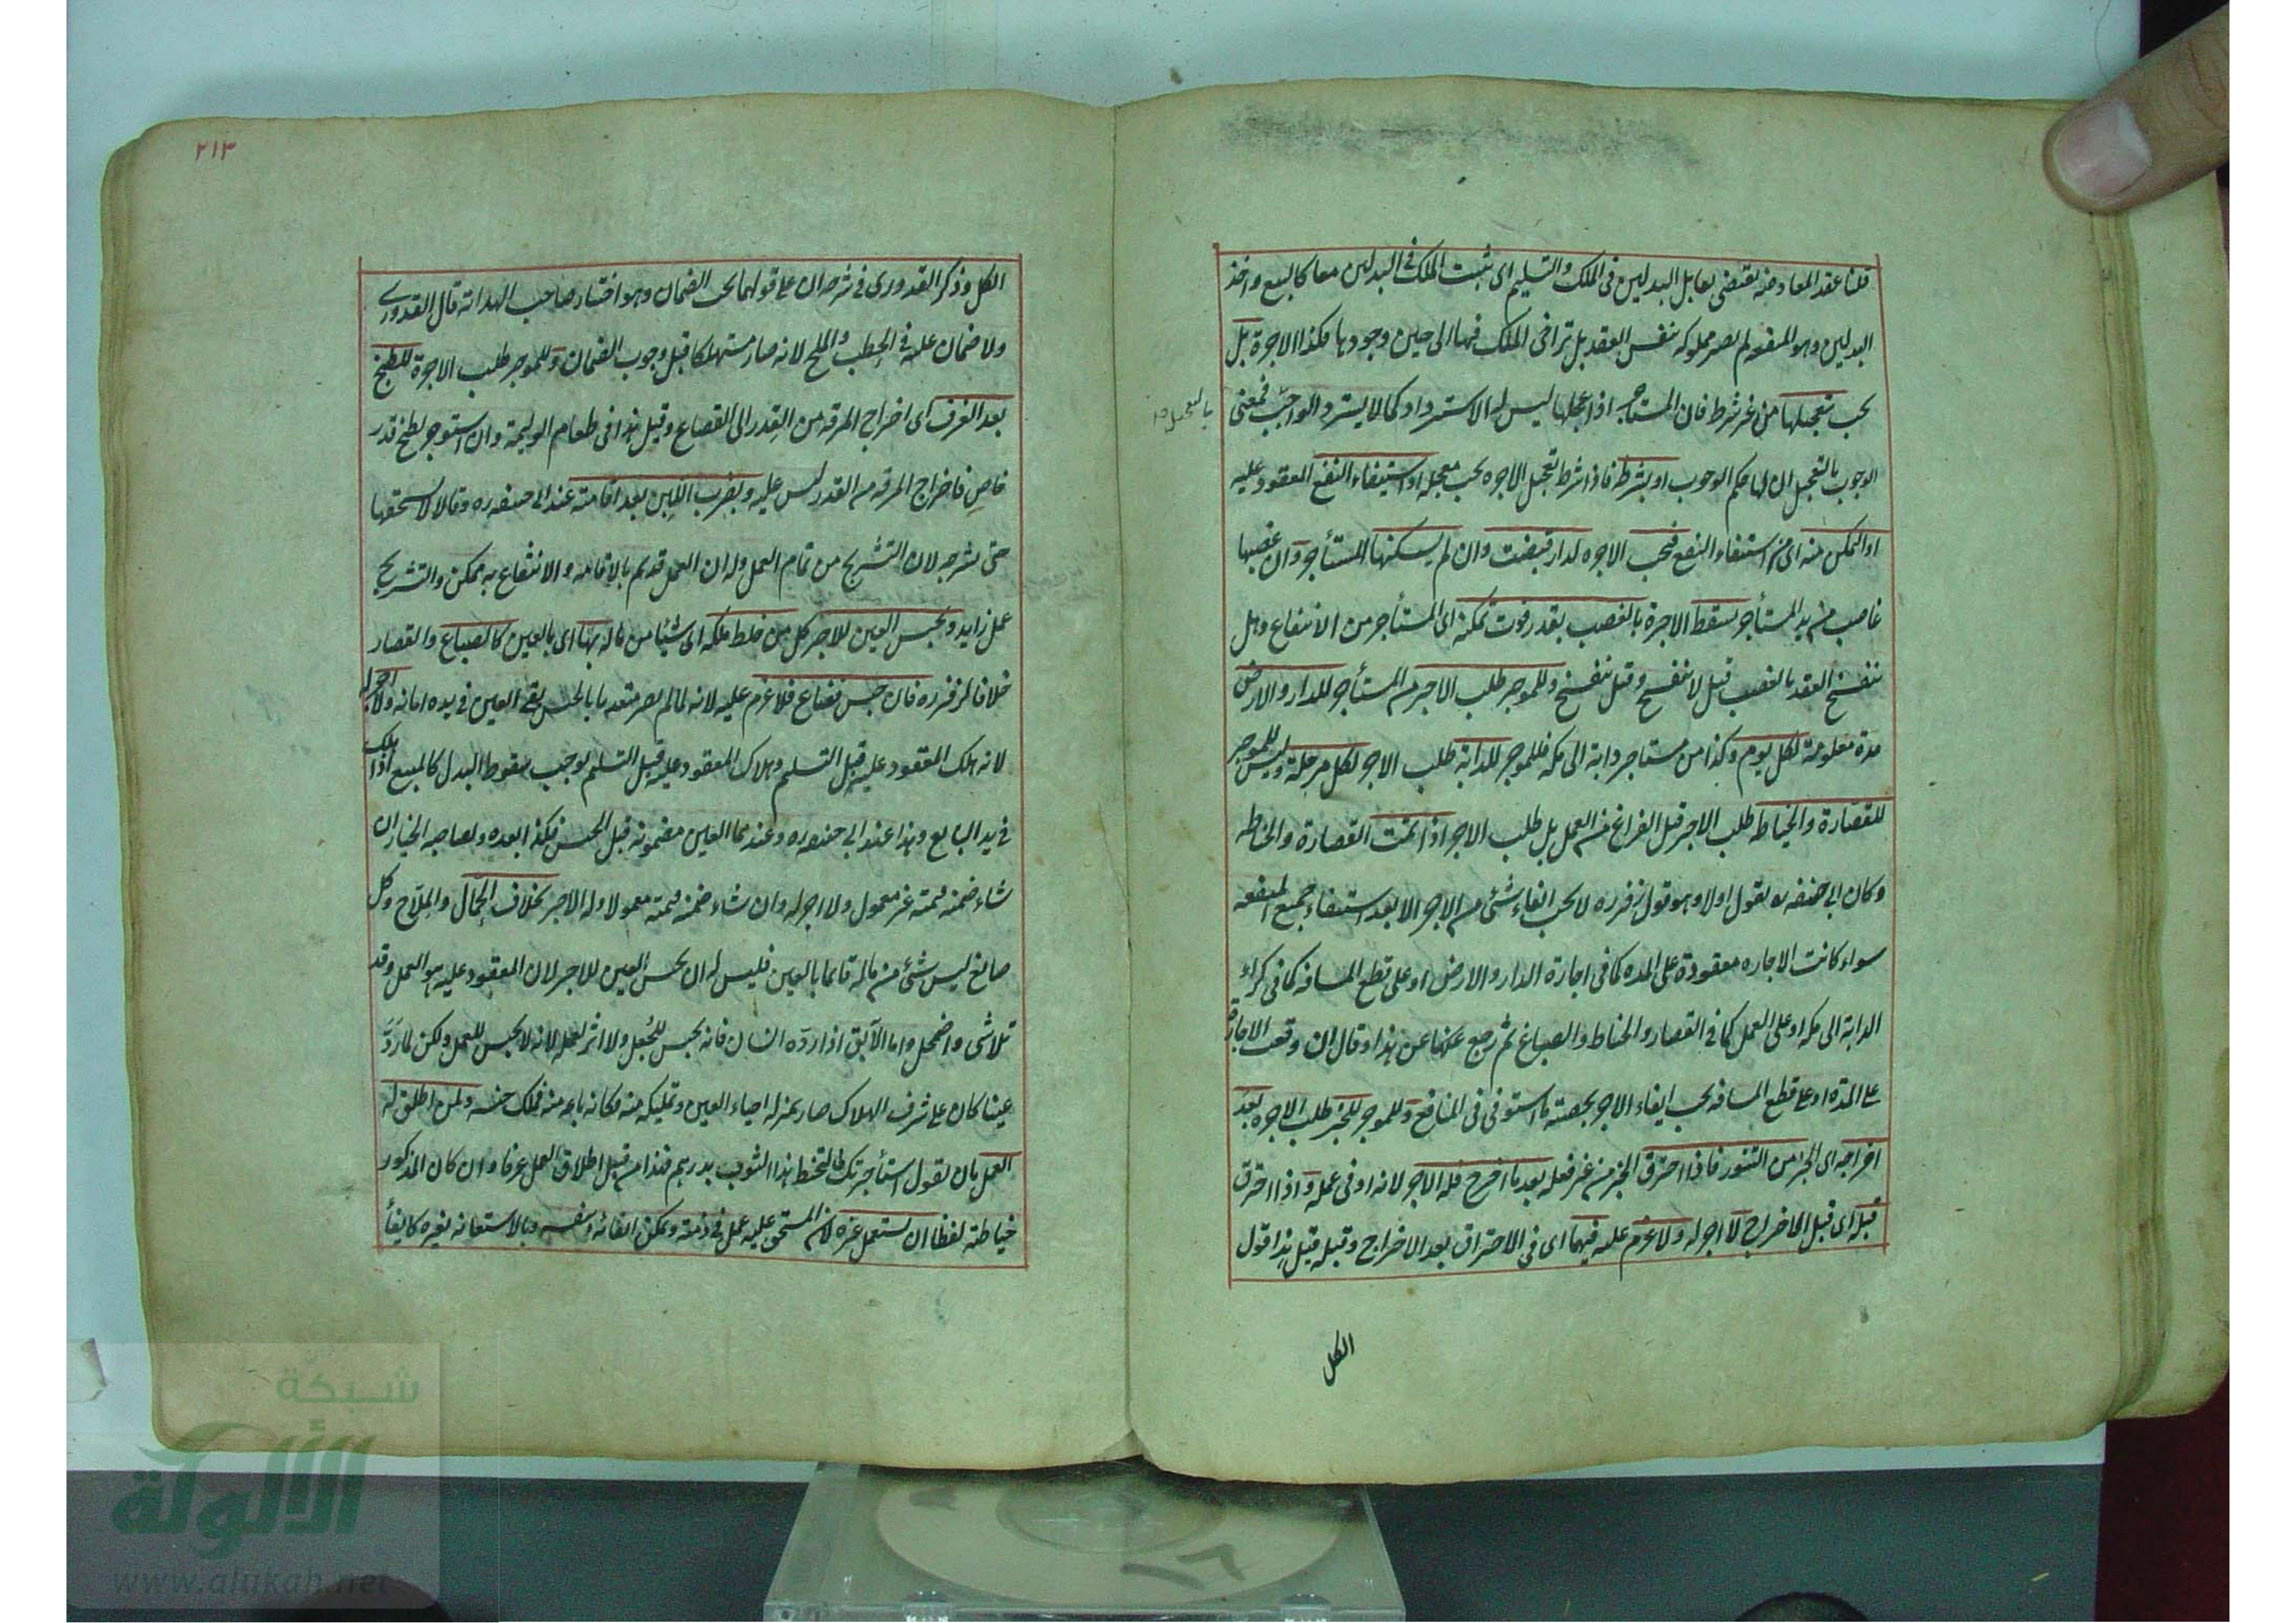 قلنا عقد المعاوضة يقتضى تقابل البدلين فى الملك والتسليم اى ثبت الملك فى البدلين معا كالبيع واخذ
البدلين وهو المنفعة لم يصر مملوكة بنفس العقد بل تراخى الملك فيها الى حين وجودها فكذا الاجرة بل
يجب بتعجيلها من غير شرط فان المستاجر اذا عجلها ليس له الاسترداد كما لا يسترد الواجب فمعنى
بالتعجيل
الوجوب بالتعجيل ان لها حكم الوجوب او بشرط فاذا شرط تعجيل الاجرة يجب معجله او استيفاء النفع المعقود عليه
او التمكن منه اى من استيفاء النفع فيجب الاجرة لدار قبضت وان لم يسكنها المستأجر وان غصبها
غاصب من يد المستأجر يسقط الاجرة بالغصب بقدر فوت تمكنه اى المستأجر من الانتفاع وهل
ينفسخ العقد بالغصب قيل لا ينفسخ وقيل ينفسخ وللموجر طلب الاجر من المستأجر للدار والارض
مدة معلومة لكل يوم وكذا من ستاجر دابة الى مكة فللموجر للدابة طلب الاجر لكل مرحلة وليس للموجر
للقصارة والخياطة طلب الاجر قبل الفراغ من العمل بل طلب الاجر اذا تمت القصارة والخياطة
وكان ابى حنيفه يقول اولا وهو قول زفر ره لا يجب ايفاء شئ من الاجر الا بعد استيفاء جميع المنفعه
سواء كانت الاجاره معقودة على المده كما فى اجارة الدار والارض او على قطع المسافه كما فى كراء
الدابة الى مكه او على العمل كما فى القصار والخياط والصباغ ثم رجع عنها عن هذا وقال ان وقعت الاجارة
على المدة او على قطع المسافه يجب ايفاء الاجر بحصته ما استوفى فى المنافع وللموجر للخبز طلب الاجره بعد
اخراجه اى الخبز من التنور فاذا احترق الخبز من غير فعله بعد ما اخرج فله الاجر لانه اوفى عمله واذا احترق
قبله اى قبل الاخراج لا اجر له ولا غرم عليه فيهما اى فى الاحتراق بعد الاخراج وقبله قيل هذا قول
الكل
٢١٣
الكل وذكر القدورى فى شرحه ان على قولهما يجب الضمان وهو اختيار صاحب الهداية قال القدورى
ولا ضمان عليه فى الحطب والملح لانه صار مستهلكا قبل وجوب الضمان وللموجر طلب الاجرة للطبخ
بعد الغرف اى اخراج المرقه من القدر الى القصاع وقيل هذا فى طعام الوليمة وان استوجر لطبخ قدر
خاص فاخراج المرقه من القدر ليس عليه وبضرب اللبن بعد اقامته عند ابى حنيفه ره وقالا لا يستحقها
حتى يشرجه لان التشريج من تمام العمل وله ان العمل قد تم بالاقامه والانتفاع به ممكن والتشريج
عمل زايد ويحبس العين للاجر كل من خلط ملكه اى شيئا من ماله بها اى بالعين كالصباغ والقصار
خلافا لزفر ره فان حبس فضاع فلا غرم عليه لانه لما لم يصر متعديا بالحبس بقى العين فى يده امانة ولا اجر له
لانه هلك المعقود عليه قبل التسليم وهلاك المعقود عليه قبل التسليم يوجب سقوط البدل كالمبيع اذا هلك
فى يد البايع وهذا عند ابى حنيفه ره وعندهما العين مضمونه قبل الحبس فكذا بعده ولصاحبه الخيار ان
شاء ضمنه قيمته غير معمول ولا اجر له وان شاء ضمنه قيمته معمولا وله الاجر بخلاف الحمال والملاح وكل
صانع ليس شئ من ماله قائما بالعين فليس له ان يحبس العين للاجر لان المعقود عليه هو العمل وقد
تلاشى واضمحل واما الآبق اذا رده انسان فانه يحبس للجعل ولا اثر لعمله لانه لا يحبس للعمل ولكن لما رد
عينا كان على شرف الهلاك صار بمنزلة احياء العين وتمليكه منه فكانه باعه منه فملك حبسه ولمن اطلق له
العمل بان يقول استأجرتك لتخيط هذا الثوب بدرهم فهذا من قبيل اطلاق العمل عرفا وان كان المذكور
خياطته لفظا ان يستعمل غيره لان المستحق عليه عمل فى ذمته ويمكن ايفائه بنفسه وبالاستعانه بغيره كايفاء
شبكة
الألوكة
www.alukah.net